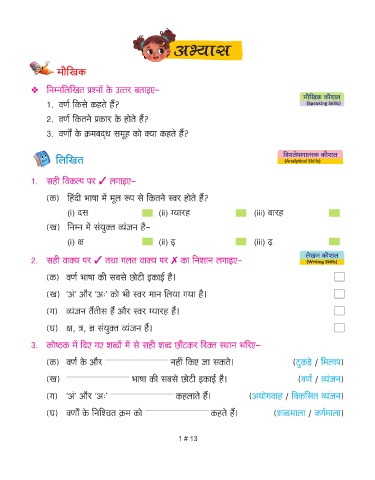 अभ्यास
मौखिक
❖ निम्नलिखित प्रश्नों के उत्तर बताइए–
मौखिक कौशल
(Speaking Skills)
1. वर्ण किसे कहते हैं?
2. वर्ण कितने प्रकार के होते हैं?
3. वर्णों के क्रमबद्ध समूह को क्या कहते हैं?
लिखित
विश्लेषणात्मक कौशल
(Analytical Skills)
1. सही विकल्प पर ✓ लगाइए–
(क) हिंदी भाषा में मूल रूप से कितने स्वर होते हैं?
(i) दस (ii) ग्यारह (iii) बारह
(ख) निम्न में संयुक्त व्यंजन है–
(i) क्ष (ii) ड़ (iii) ढ़
2. सही वाक्य पर ✓ तथा गलत वाक्य पर ✗ का निशान लगाइए–
लेखन कौशल
(Writing Skills)
(क) वर्ण भाषा की सबसे छोटी इकाई है।
(ख) 'अं' और 'अः' को भी स्वर मान लिया गया है।
(ग) व्यंजन तैंतीस हैं और स्वर ग्यारह हैं।
(घ) क्ष, त्र, ज्ञ संयुक्त व्यंजन हैं।
3. कोष्ठक में दिए गए शब्दों में से सही शब्द छाँटकर रिक्त स्थान भरिए–
(क) वर्ण के और नहीं किए जा सकते। (टुकड़े / मिलाप)
(ख) भाषा की सबसे छोटी इकाई है। (वर्ण / व्यंजन)
(ग) 'अं' और 'अः' कहलाते हैं। (अयोगवाह / विकसित व्यंजन)
(घ) वर्णों के निश्चित क्रम को कहते हैं। (शब्दमाला / वर्णमाला)
1 # 13